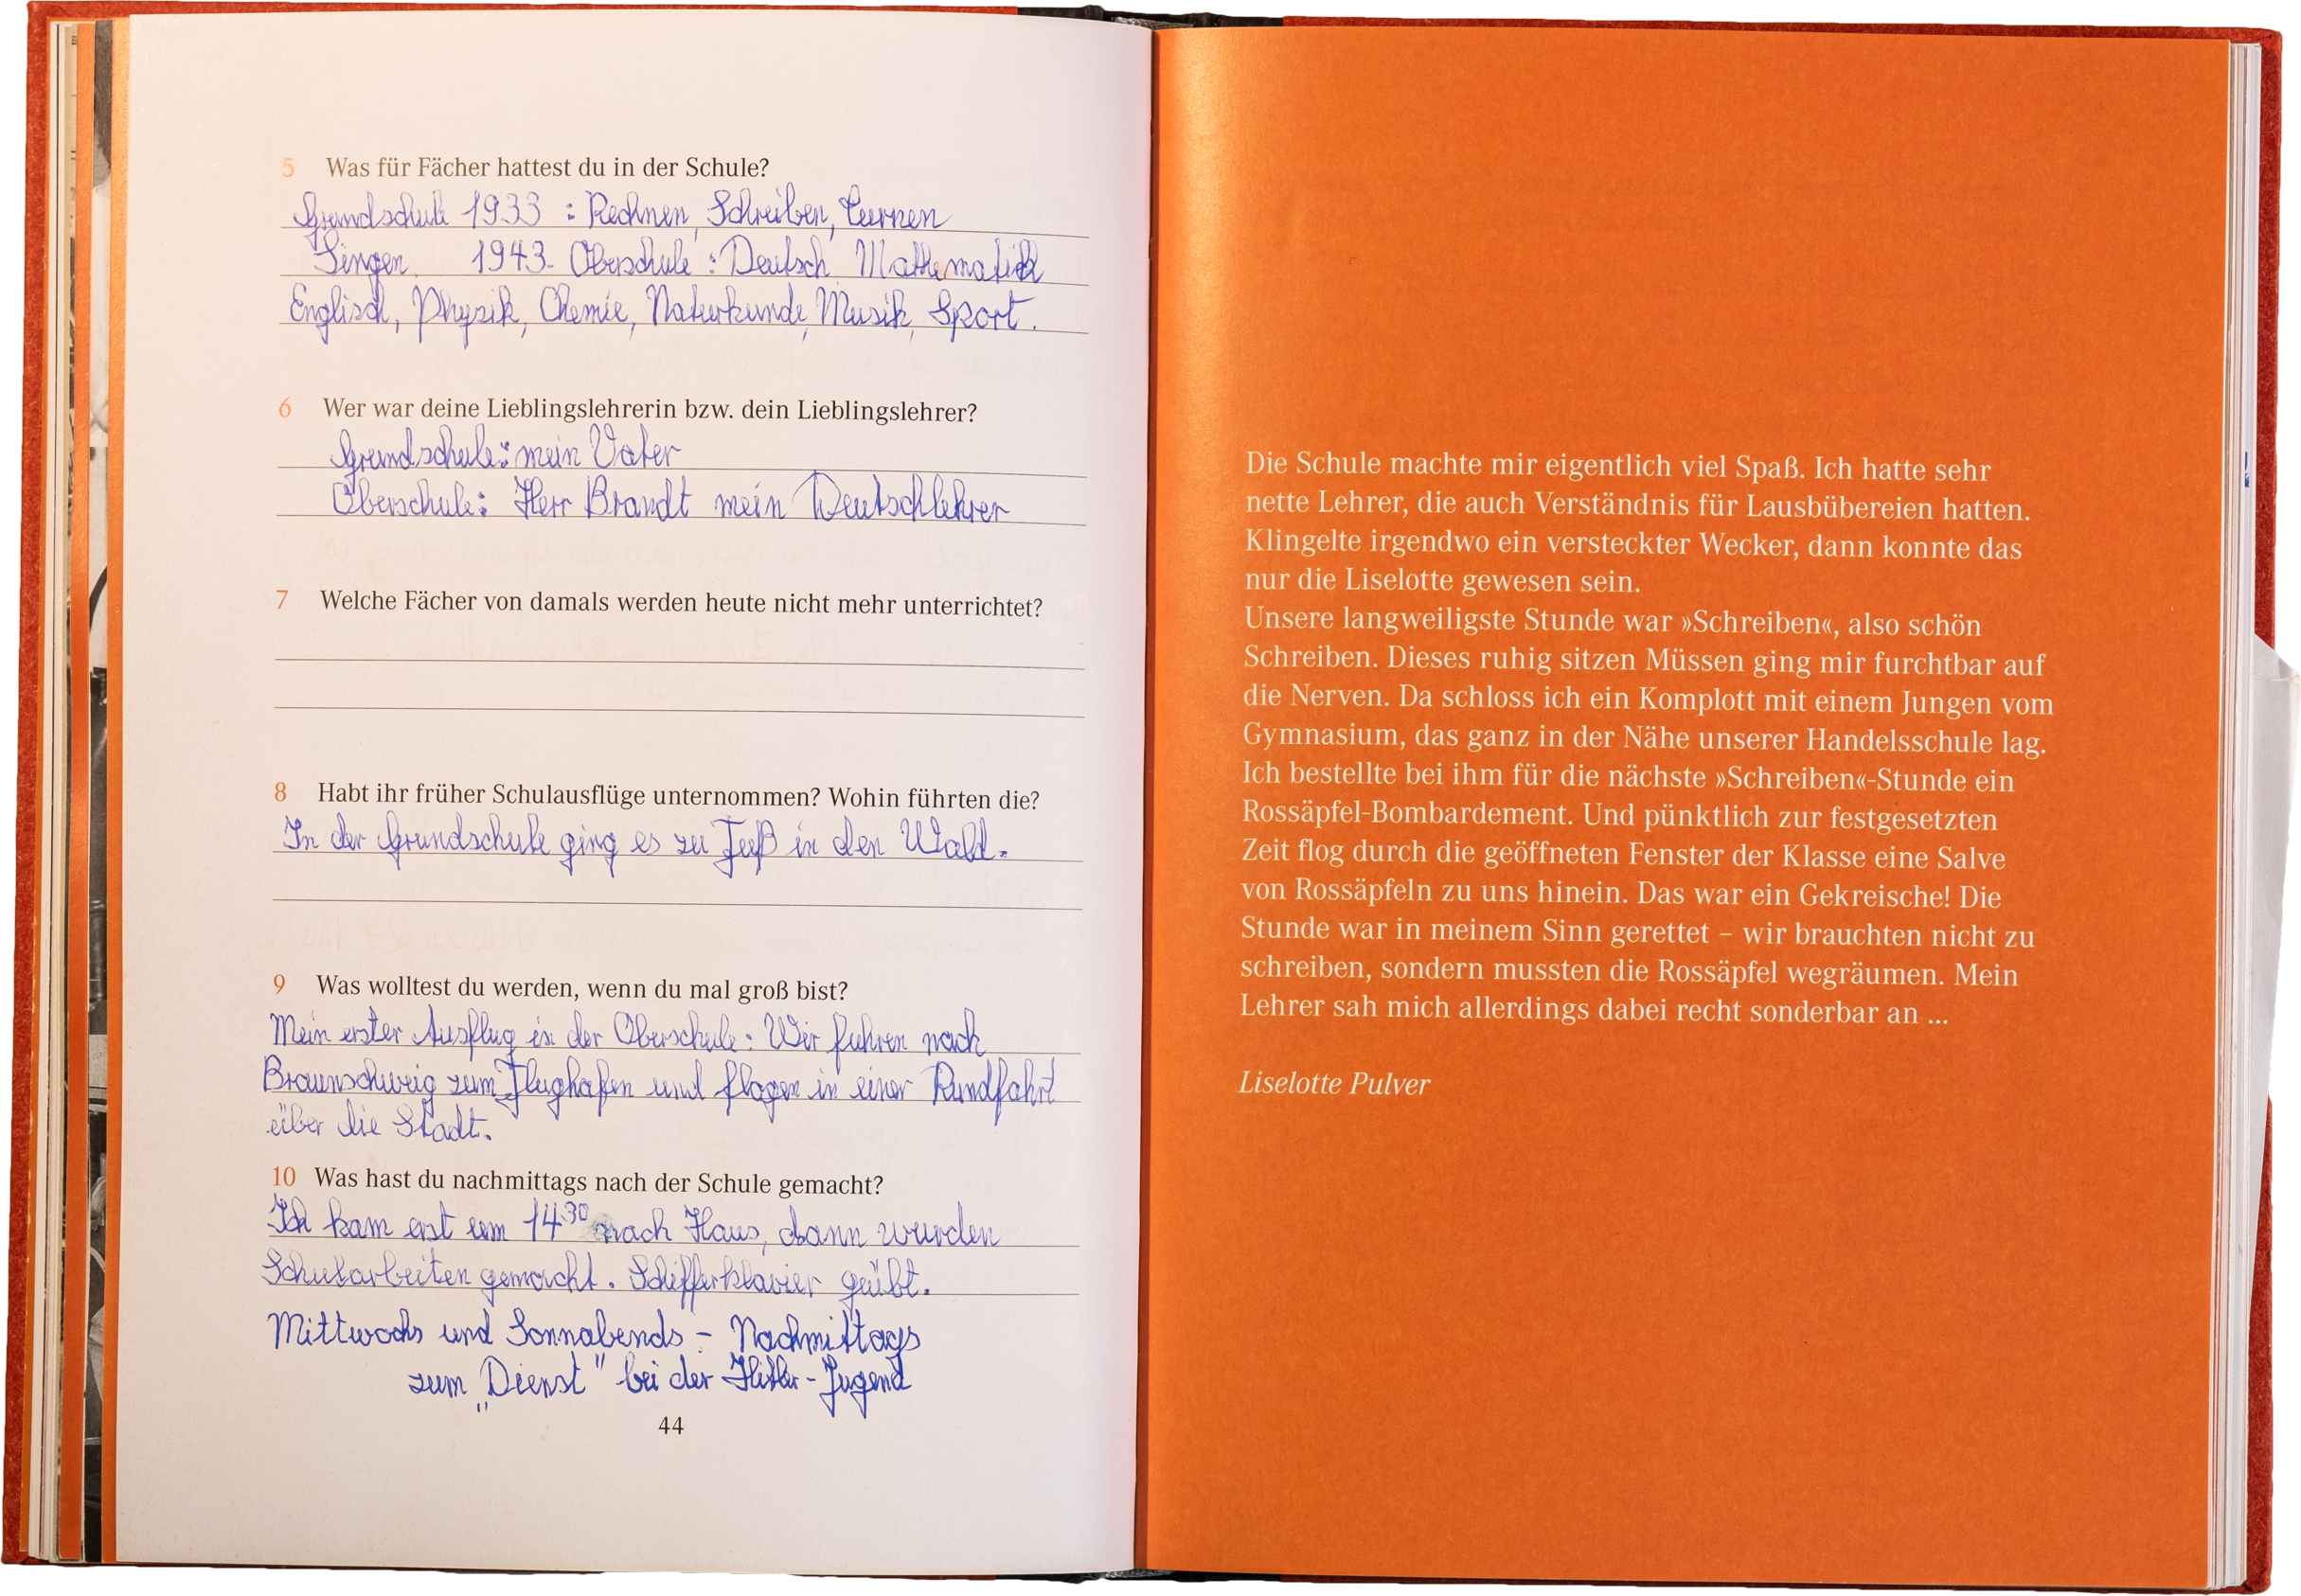 5 Was für Fächer hattest du in der Schule?
Grundschule 1933 : Rechnen, Schreiben, Turnen
Singen 1943. Oberschule : Deutsch Mathematik
Englisch, Physik, Chemie, Naturkunde, Musik, Sport.
6 Wer war deine Lieblingslehrerin bzw. dein Lieblingslehrer?
Grundschule: mein Vater
Oberschule: Herr Brandt mein Deutschlehrer
7 Welche Fächer von damals werden heute nicht mehr unterrichtet?
8 Habt ihr früher Schulausflüge unternommen? Wohin führten die?
In der Grundschule ging es zu Fuß in den Wald.
9 Was wolltest du werden, wenn du mal groß bist?
Mein erster Ausflug in der Oberschule: Wir fuhren nach
Braunschweig zum Flughafen und flogen in einer Rundfahrt
über die Stadt.
10 Was hast du nachmittags nach der Schule gemacht?
Ich kam erst um 14³⁰ nach Haus, dann wurden
Schularbeiten gemacht. Schifferklavier geübt.
Mittwochs und Sonnabends - Nachmittags
zum „Dienst" bei der Hitler-Jugend
44
Die Schule machte mir eigentlich viel Spaß. Ich hatte sehr
nette Lehrer, die auch Verständnis für Lausbübereien hatten.
Klingelte irgendwo ein versteckter Wecker, dann konnte das
nur die Liselotte gewesen sein.
Unsere langweiligste Stunde war »Schreiben«, also schön
Schreiben. Dieses ruhig sitzen Müssen ging mir furchtbar auf
die Nerven. Da schloss ich ein Komplott mit einem Jungen vom
Gymnasium, das ganz in der Nähe unserer Handelsschule lag.
Ich bestellte bei ihm für die nächste »Schreiben«-Stunde ein
Rossäpfel-Bombardement. Und pünktlich zur festgesetzten
Zeit flog durch die geöffneten Fenster der Klasse eine Salve
von Rossäpfeln zu uns hinein. Das war ein Gekreische! Die
Stunde war in meinem Sinn gerettet – wir brauchten nicht zu
schreiben, sondern mussten die Rossäpfel wegräumen. Mein
Lehrer sah mich allerdings dabei recht sonderbar an ...
Liselotte Pulver